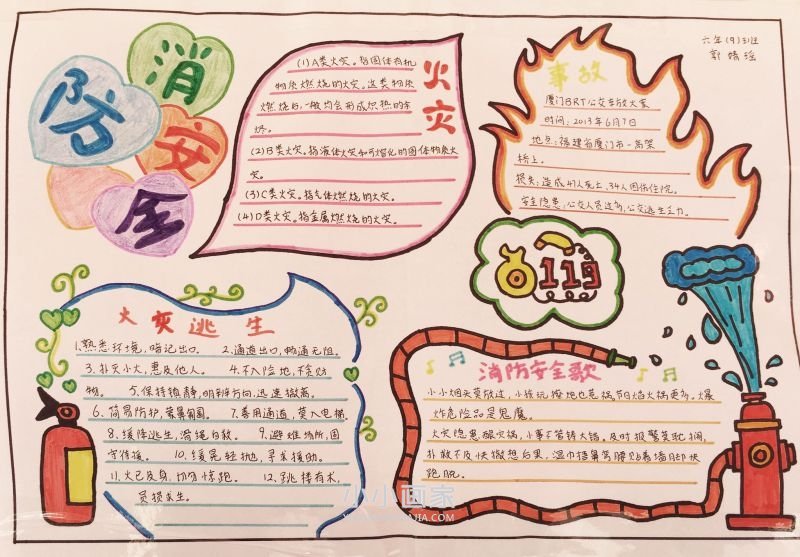 消防安全
六年(9)班
郭婧瑶
火灾
(1)A类火灾。指固体有机
物质燃烧的火灾。这类物质
燃烧后,一般均会形成炽热的余
烬。
(2)B类火灾。指液体火灾和可熔化的固体物质火
灾。
(3)C类火灾。指气体燃烧的火灾。
(4)D类火灾。指金属燃烧的火灾。
事故
厦门BRT公交车放火案
时间:2013年6月7日
地点:福建省厦门市一高架
桥上。
损失:造成47人死亡,34人因伤住院。
安全隐患:公交人员过多,公交逃生乏力。
119
火灾逃生
1.熟悉环境,暗记出口。 2.通道出口,畅通无阻。
3.扑灭小火,惠及他人。 4.不入险地,不贪财
物。 5.保持镇静,明辨方向,迅速撤离。
6.简易防护,蒙鼻匍匐。 7.善用通道,莫入电梯。
8.缓降逃生,滑绳自救。 9.避难场所,固
守待援。 10.缓晃轻抛,寻求援助。
11.火已及身,切勿惊跑。 12.跳楼有术,
员损求生。
消防安全歌
小小烟头莫放过,小孩玩 也惹祸,节日焰火祸更多,爆
炸危险品是鬼魔。
火灾隐患酿灾祸,小事不管铸大错。及时报警莫耽搁,
扑救不及快撤 后果,湿巾捂鼻弯腰贴着墙脚快
跑脱。
小小画家